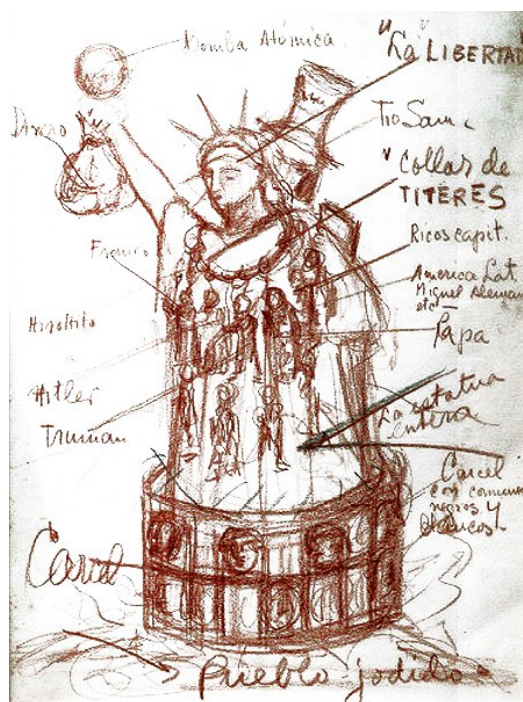 Bomba Atómica.
"La" LIBERTAD
Dinero
Tio Sam
"Collar de
TITERES
Franco
Ricos capit.
America Lat.
Miguel Aleman
etc
Hirohito
Papa
Hitler
Truman
La estatua
entera
Carcel
con comunis
negros y
blancos
Carcel
Pueblo jodido